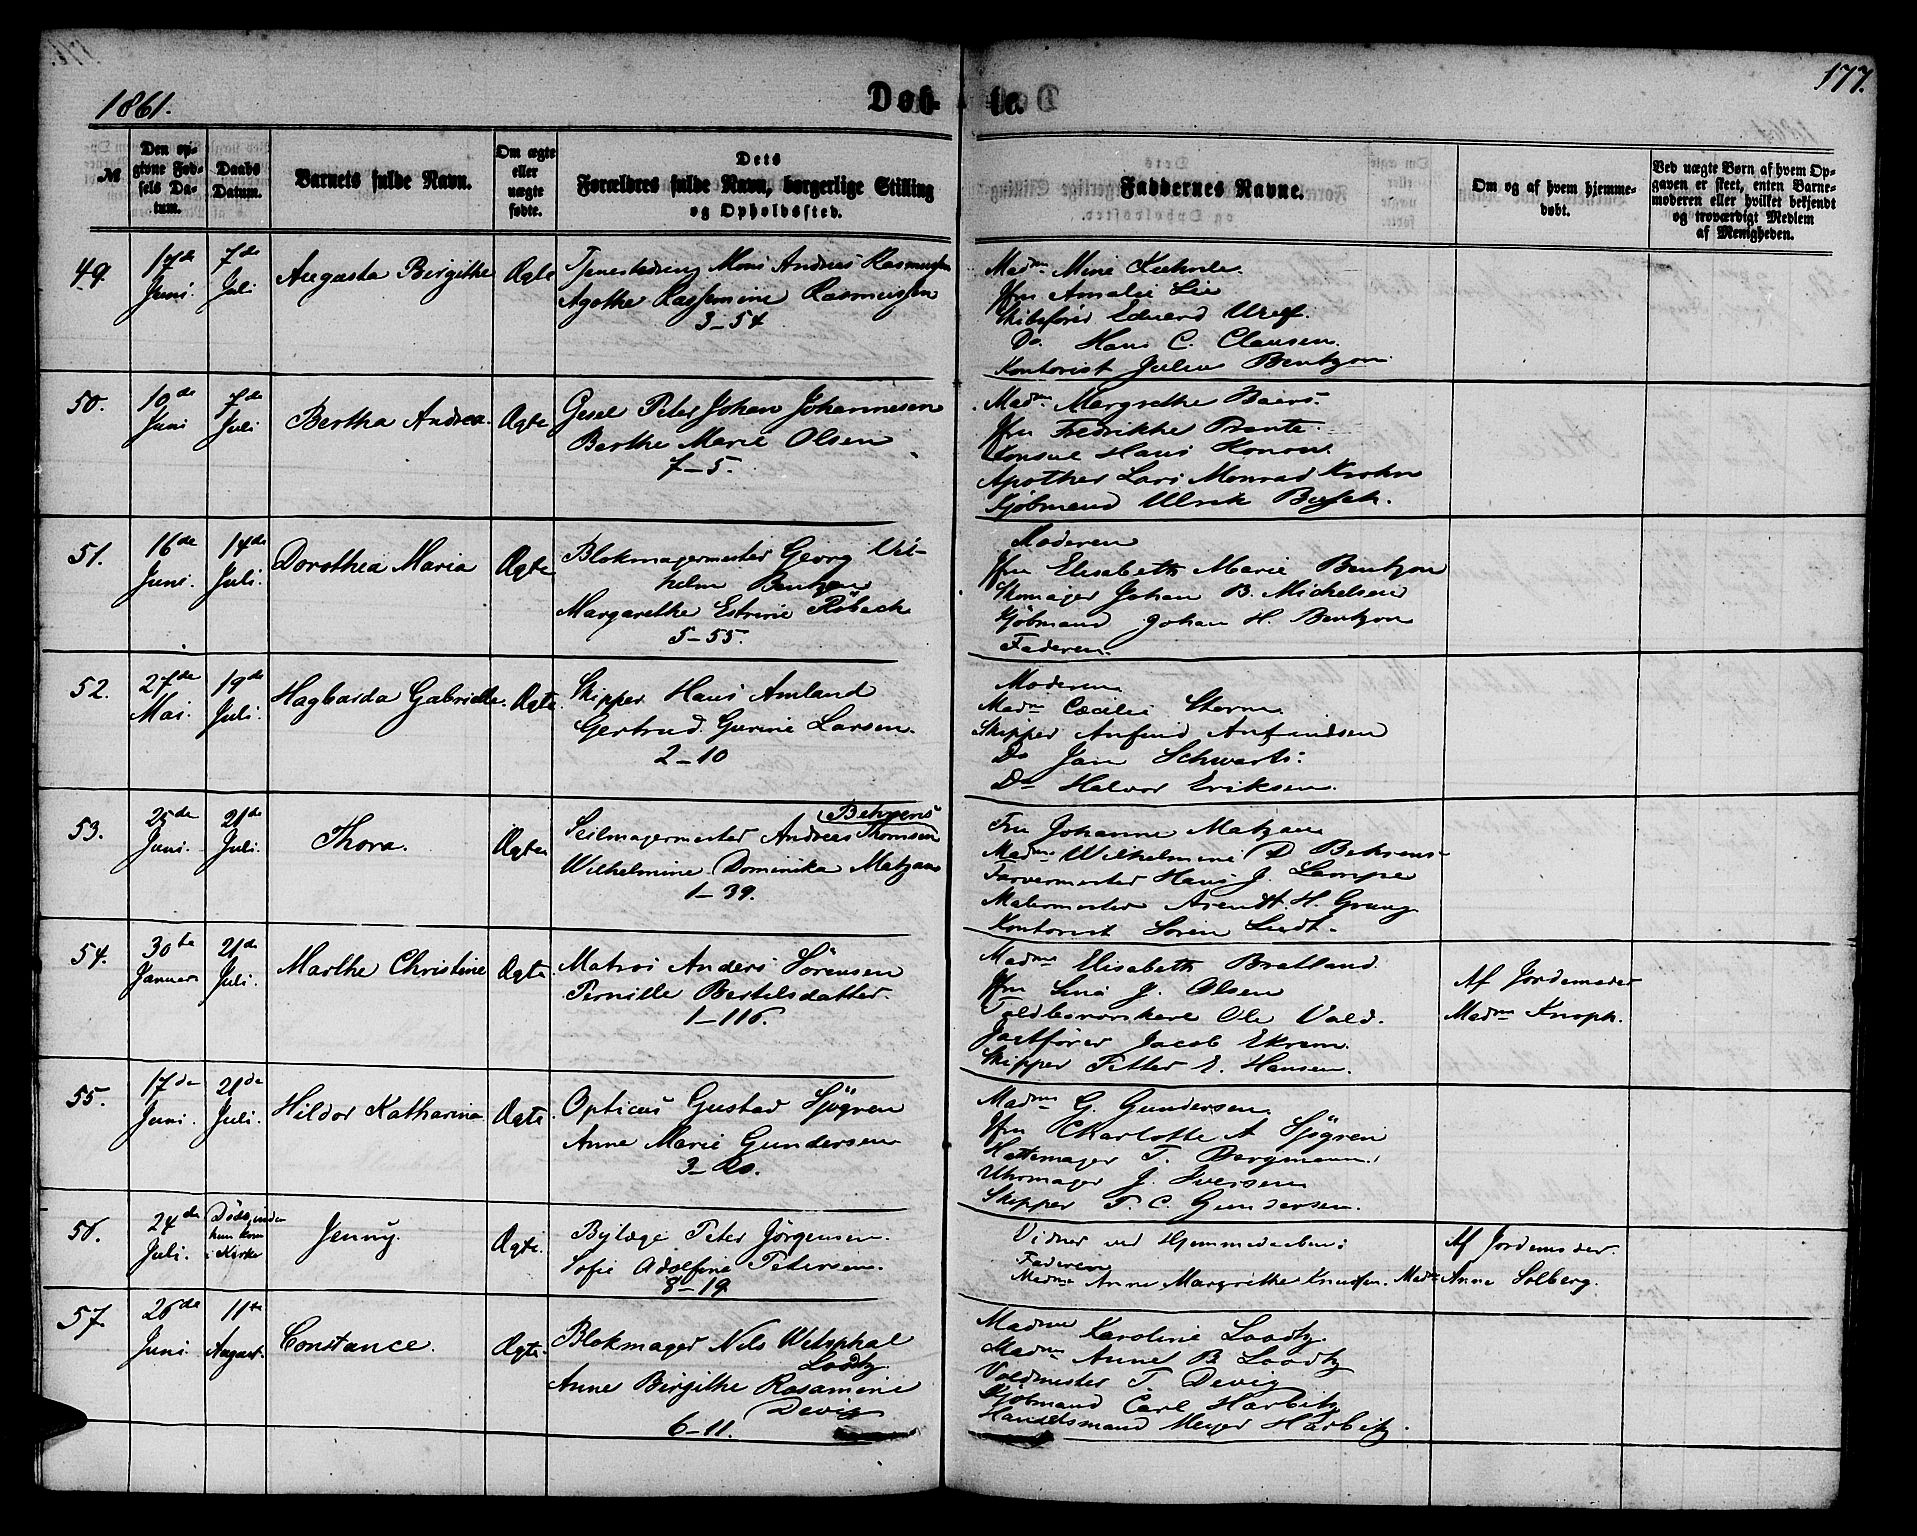 1861.
Døb-
te.
177.
№
Den op-
givne Fød-
sels Da-
tum.
Daabs
Datum.
Barnets fulde Navn.
Om ægte
eller
uægte
fødte.
Dets
Forældres fulde Navn, borgerlige Stilling
og Opholdssted.
Faddernes Navne.
Om og af hvem hjemme-
døbt.
Ved uægte Børn af hvem Op-
gaven er skeet, enten Barne-
moderen eller hvilket bekjendt
og troværdigt Medlem
af Menigheden.
49.
17de
Juni.
7de
Juli
Augusta Birgithe
Ægte
Mons Andreas Rasmussen
Agathe Rasmussen
3-54
Madm Mine
Jfru Amalie Lie
Skibsfører Edvard
Do. Hans C. Clausen.
Kontorist Julius Bentzon.
50.
19de
Juni
7de
Juli
Bertha Andrea.
Ægte
Gesel Peter Johan Johannesen
Berthe Marie Olsen
7-5.
Madm Margrethe Baers.
Jfru Fredrikke Prante.
Konsul Hans Konow.
Apother Lars Monrad Krohn
Kjøbmand Ulrik Busch.
51.
16de
Juni.
14de
Juli.
Dorothea Maria
Ægte
Blokmagermester Georg Vil-
helm Bentzon
Margarethe Estrine Røbech
5-55.
Moderen
Jfru Elisabeth Marie Bentzon
Skomager Johan B. Michelsen
Kjøbmand Johan H. Bentzon
Faderen.
52.
27de
Mai.
19de
Juli.
Hagbarda Gabrielle.
Ægte.
Skipper Hans Amland
Gertrud Gurine Larsen.
2-10
Moderen
Madm Cæcilie Storm
Skipper Anfind Anfindsen
Do Jan Schwarts.
Do Halvor Eriksen.
53.
25de
Juni.
21de
Juli.
Thora.
Ægte
Behrens
Seilmagermester Andreas Thomsen
Wilhelmine Dominika Matzau
1-39.
Fru Johanne Matzau
Madm Wilhelmine D Behrens
Farvermester Hans J. Lampe
Malermester Arendt. H. Grung
Kontorist Søren Lindt.
54.
30te
Januar
21de
Juli.
Marthe Christine
Ægte
Matros Anders Sörensen
Pernille Bertelsdatter.
1-116.
Madm Elisabeth Bratland.
Jfru Lina J. Olsen
Toldbesvorskarl Ole Vald.
Jagtfører Jacob Ekrem.
Skipper Petter E. Hansen.
Af Jordemoder
Madm Knoph.
55.
17de
Juni.
21de
Juli.
Hildor Katharina
Ægte
Opticus Gustav Sjøgren
Anne Marie Gundersen
3-20.
Madm G. Gundersen
Jfru Charlotte A Sjøgren
Hattemager T. Bergmann.
Uhrmager J. Iversen
Skipper T. C. Gundersen.
56.
24de
Juli.
Døde inden
hun kom
i Kirke
Jenny.
Ægte.
Bylæge Peter Jörgensen.
Sofie Adolfine Petersen.
8-19
Vidner ved Hjemmedaaben:
Faderen
Madme Anne Margrethe Knudsen. Madm Anne Solberg.
Af Jordemoder
57
26de
Juni.
11te
August.
Constance.
Ægte.
Blokmager Nils Westphal
Loodtz
Anne Birgithe Rosamine
Devig
6-11.
Madme Karoline Loodtz.
Madm Anne B. Loodtz
Voldmester T. Devig
Kjøbmand Carl Harbitz
Handelsmand Meyer Harbitz.